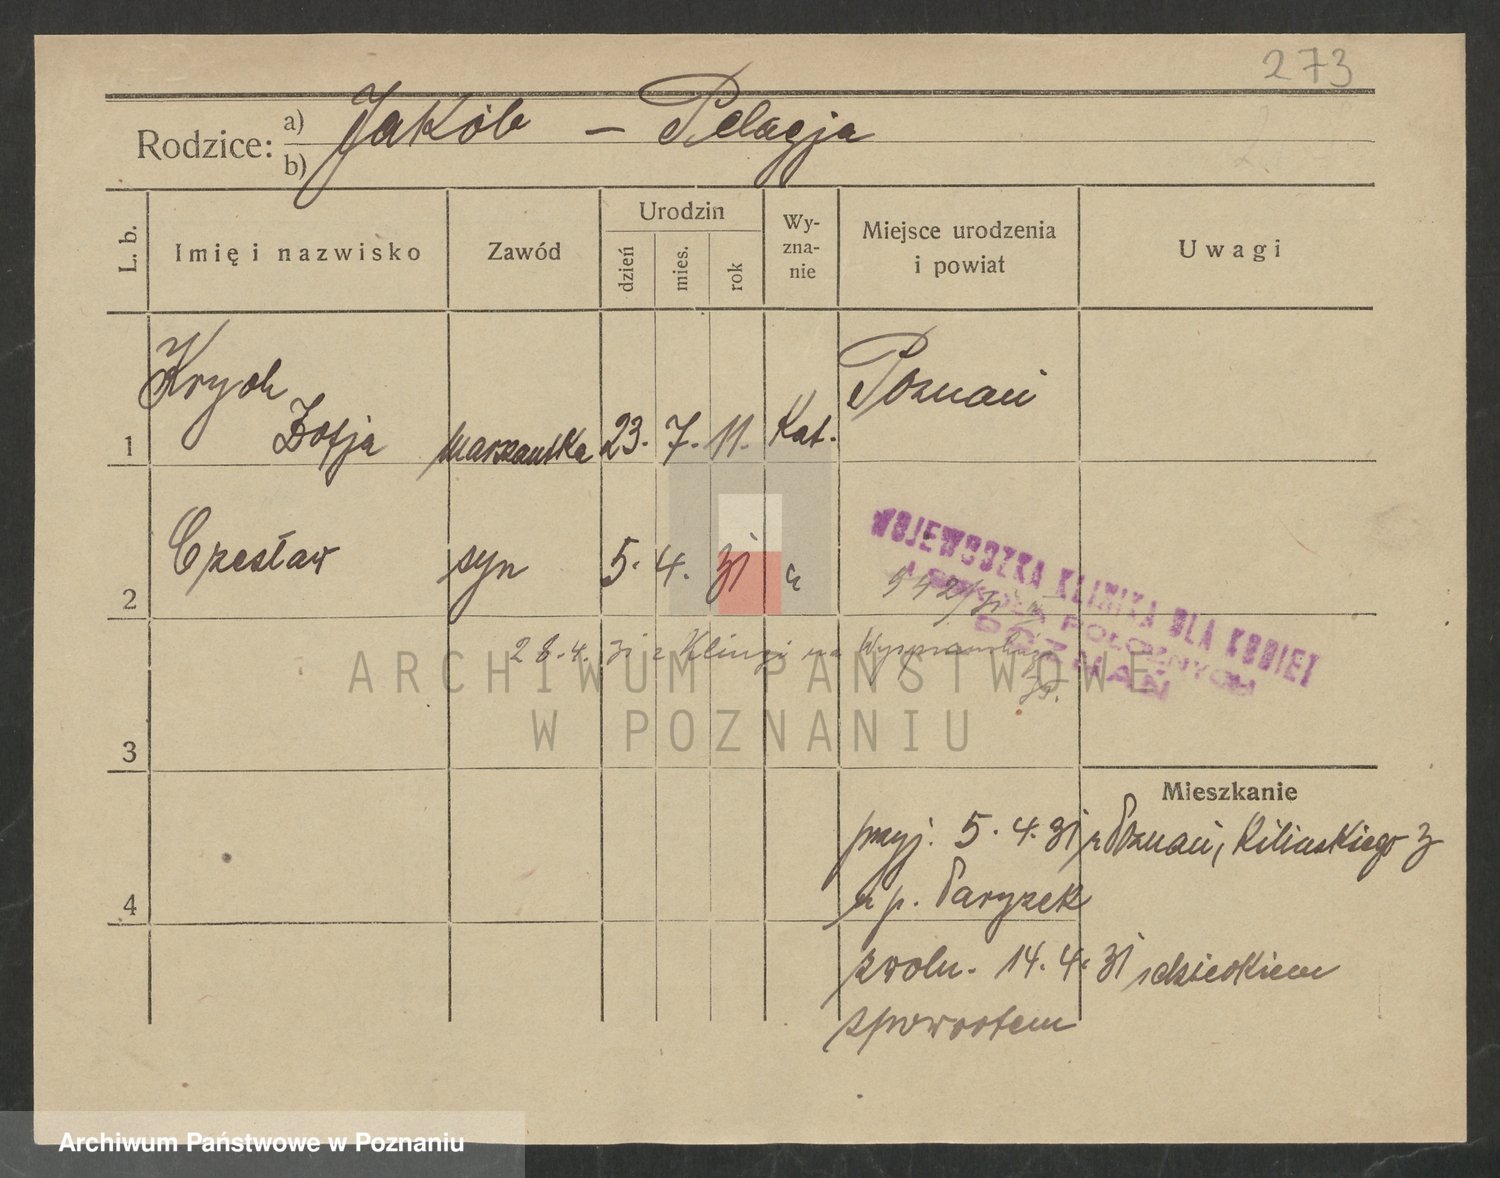 273
Rodzice: a) Jakób – Pelagja
b)
L. b.
Imię i nazwisko
Zawód
Urodzin
dzień
mies.
rok
Wy-
zna-
nie
Miejsce urodzenia
i powiat
Uwagi
1 Krych Zofja 23. 7. 11. Kat. Poznań
2 Czesław syn 5. 4. 31
WOJEWÓDZKA KLINIKA DLA KOBIET
POŁOŻNYCH
POZNAŃ
542/31
28. 4. 31 z Kliniki na
3
Mieszkanie
przyj. 5. 4. 31 z Poznań, Kilińskiego 3
4 u p. Paryzek
zwoln. 14. 4. 31 z dzieckiem
zpowrotem
ARCHIWUM PAŃSTWOWE
W POZNANIU
Archiwum Państwowe w Poznaniu